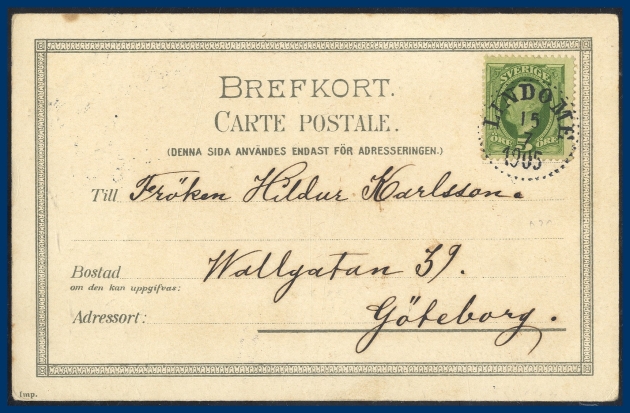 BREFKORT.
CARTE POSTALE.
(DENNA SIDA ANVÄNDES ENDAST FÖR ADRESSERINGEN.)
SVERIGE
LINDOME
15
7
1905
ÖRE
Till Fröken Hildur Karlsson.
Bostad Wallgatan 39.
om den kan uppgifvas:
Adressort: Göteborg.
Imp.